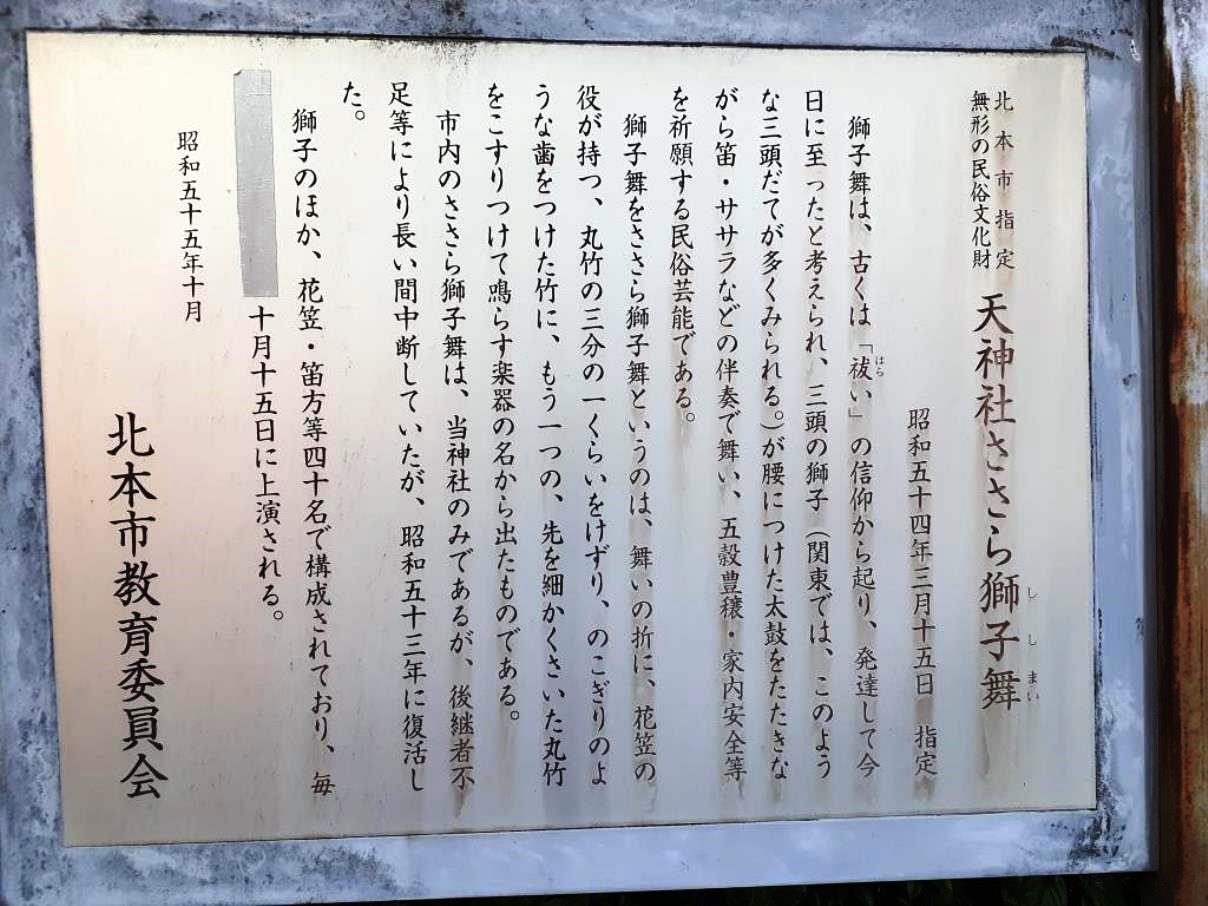 北本市指定
無形の民俗文化財
天神社ささら獅子舞
ししまい
昭和五十四年三月十五日 指定
獅子舞は、古くは「祓い」の信仰から起り、発達して今
はら
日に至ったと考えられ、三頭の獅子(関東では、このよう
な三頭だてが多くみられる。)が腰につけた太鼓をたたきな
がら笛・ササラなどの伴奏で舞い、五穀豊穣・家内安全等
を祈願する民俗芸能である。
獅子舞をささら獅子舞というのは、舞いの折に、花笠の
役が持つ、丸竹の三分の一くらいをけずり、のこぎりのよ
うな歯をつけた竹に、もう一つの、先を細かくさいた丸竹
をこすりつけて鳴らす楽器の名から出たものである。
市内のささら獅子舞は、当神社のみであるが、後継者不
足等により長い間中断していたが、昭和五十三年に復活し
た。
獅子のほか、花笠・笛方等四十名で構成されており、毎
十月十五日に上演される。
昭和五十五年十月
北本市教育委員会